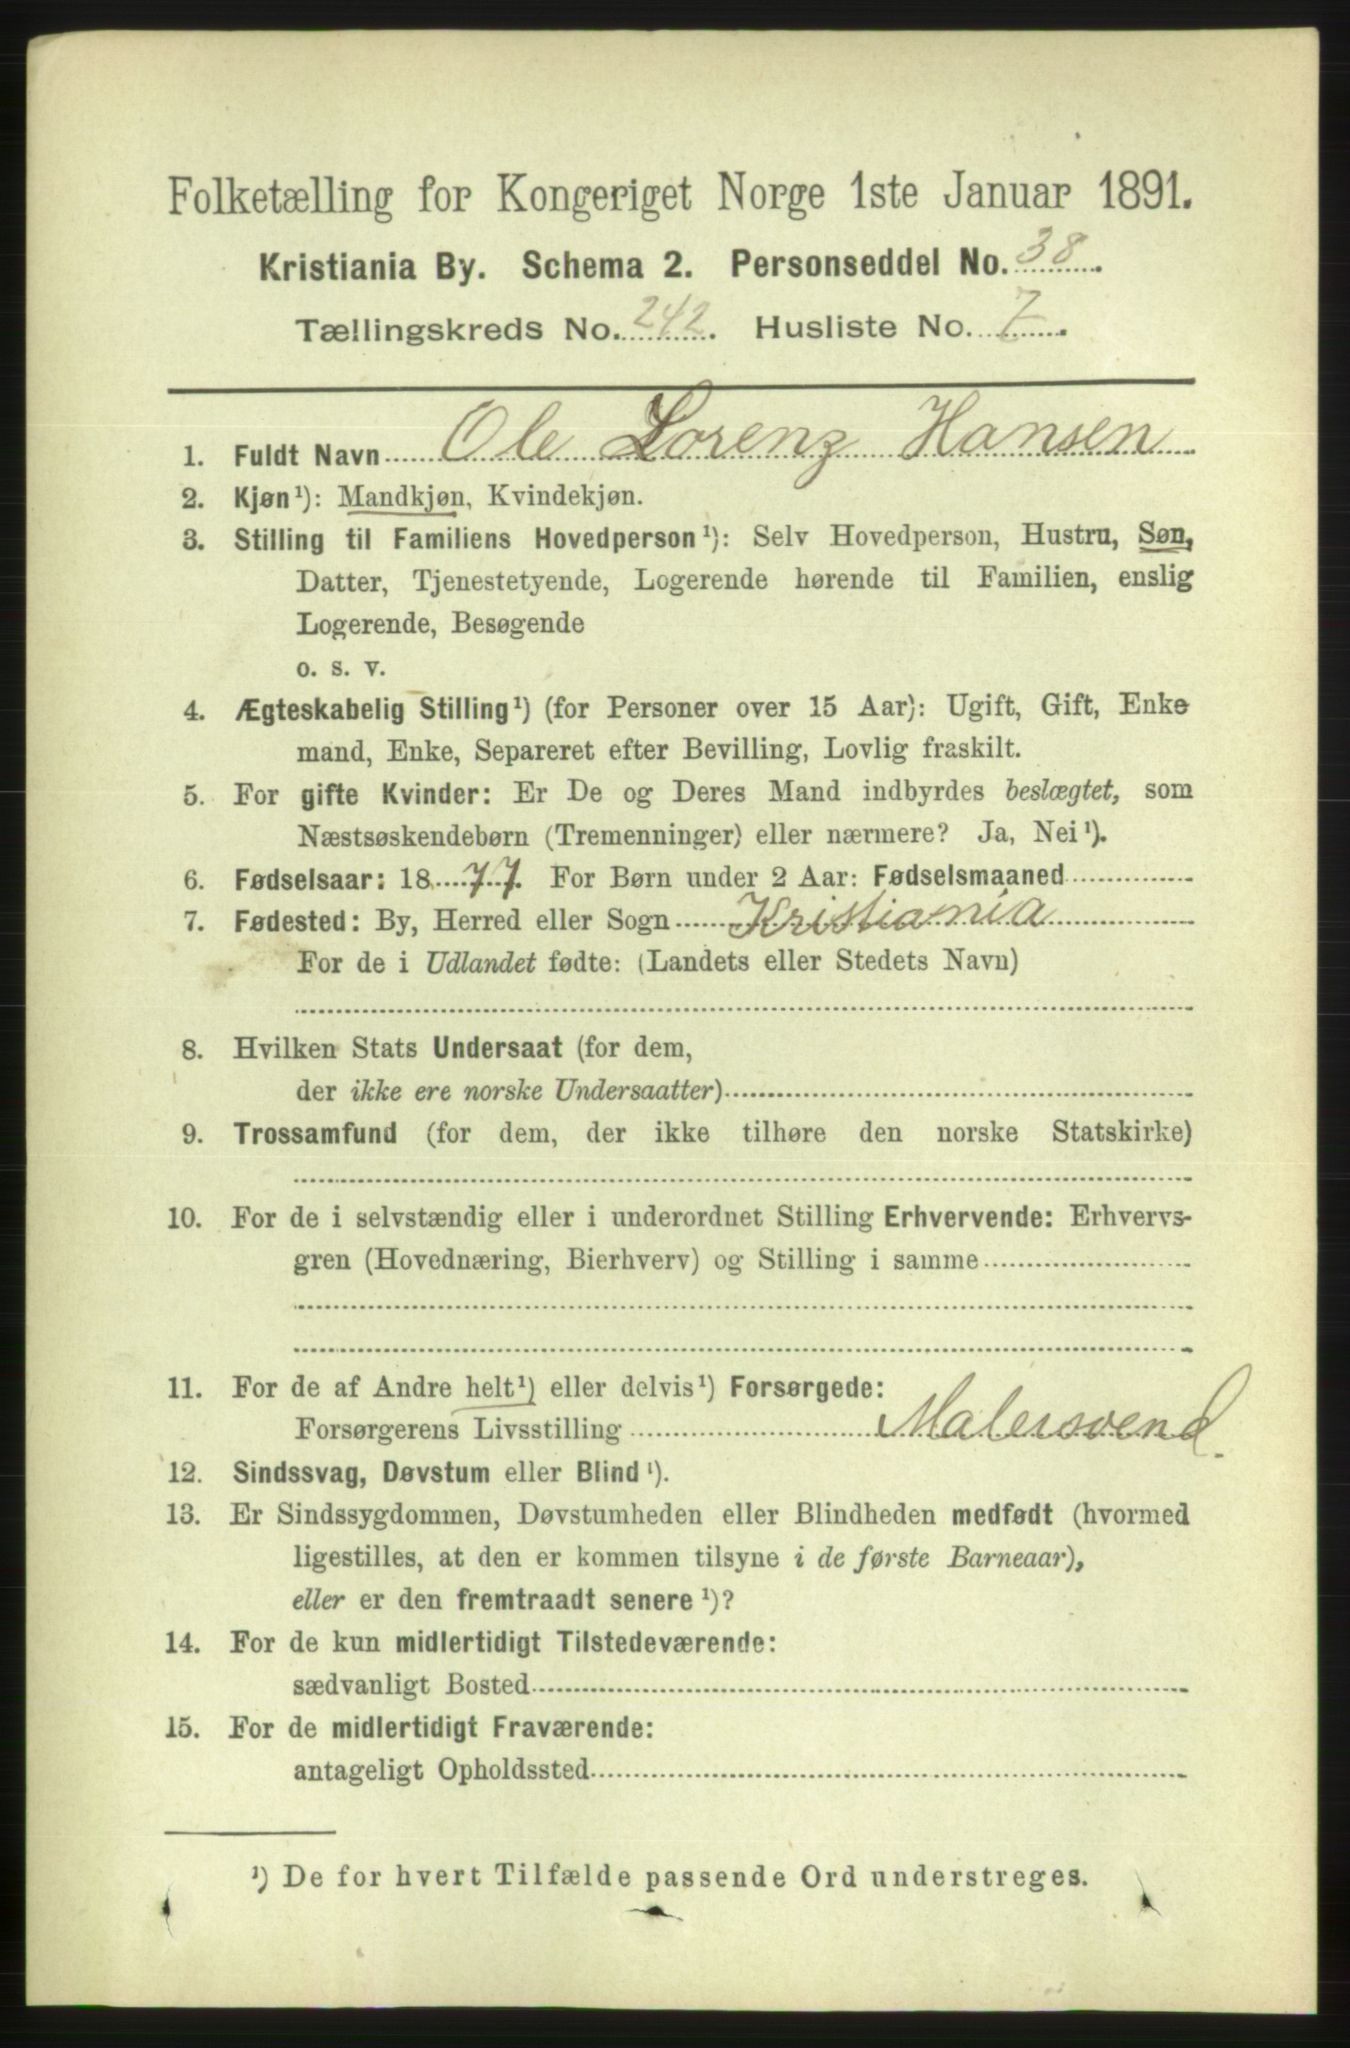 Folketælling for Kongeriget Norge 1ste Januar 1891.
Kristiania By. Schema 2. Personseddel No. 38.
Tællingskreds No. 242. Husliste No. 7.
1. Fuldt Navn Ole Lorenz Hansen
2. Kjøn¹): Mandkjøn, Kvindekjøn.
3. Stilling til Familiens Hovedperson¹): Selv Hovedperson, Hustru, Søn,
Datter, Tjenestetyende, Logerende hørende til Familien, enslig
Logerende, Besøgende
o. s. v.
4. Ægteskabelig Stilling¹) (for Personer over 15 Aar): Ugift, Gift, Enke
mand, Enke, Separeret efter Bevilling, Lovlig fraskilt.
5. For gifte Kvinder: Er De og Deres Mand indbyrdes beslægtet, som
Næstsøskendebørn (Tremenninger) eller nærmere? Ja, Nei¹).
6. Fødselsaar: 18 77. For Børn under 2 Aar: Fødselsmaaned
7. Fødested: By, Herred eller Sogn Kristiania
For de i Udlandet fødte: (Landets eller Stedets Navn)
8. Hvilken Stats Undersaat (for dem,
der ikke ere norske Undersaatter)
9. Trossamfund (for dem, der ikke tilhøre den norske Statskirke)
10. For de i selvstændig eller i underordnet Stilling Erhvervende: Erhvervs-
gren (Hovednæring, Bierhverv) og Stilling i samme
11. For de af Andre helt¹) eller delvis¹) Forsørgede:
Forsørgerens Livsstilling Malersvend.
12. Sindssvag, Døvstum eller Blind¹).
13. Er Sindssygdommen, Døvstumheden eller Blindheden medfødt (hvormed
ligestilles, at den er kommen tilsyne i de første Barneaar),
eller er den fremtraadt senere¹)?
14. For de kun midlertidigt Tilstedeværende:
sædvanligt Bosted
15. For de midlertidigt Fraværende:
antageligt Opholdssted
¹) De for hvert Tilfælde passende Ord understreges.